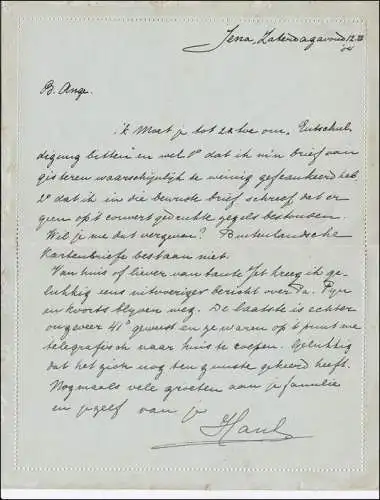 Jena, Zaterdagavond 12.III
B. Ange.
ik moet je tot 2x toe om „Entschul-
digung bitten" en wel 1° dat ik m'n brief van
gisteren waarschijnlijk te weinig gefrankeerd heb
2° dat ik in die bewuste brief schreef dat er
geen op 't couvert gedrukte zegels bestonden.
Wil je me dat vergeven? Buitenlandsche
Kartenbriefe bestaan niet.
Van huis of liever van tante Jet kreeg ik ge-
lukkig eens uitvoeriger bericht over Pa.
en koorts blyven weg. De laatste is echter
ongeveer 41° geweest en ze waren op 't punt me
telegrafisch naar huis te roepen. Gelukkig
dat het ziekte nog ten gunste gekeerd heeft.
Nogmaals vele groeten aan je familie
en jezelf van je